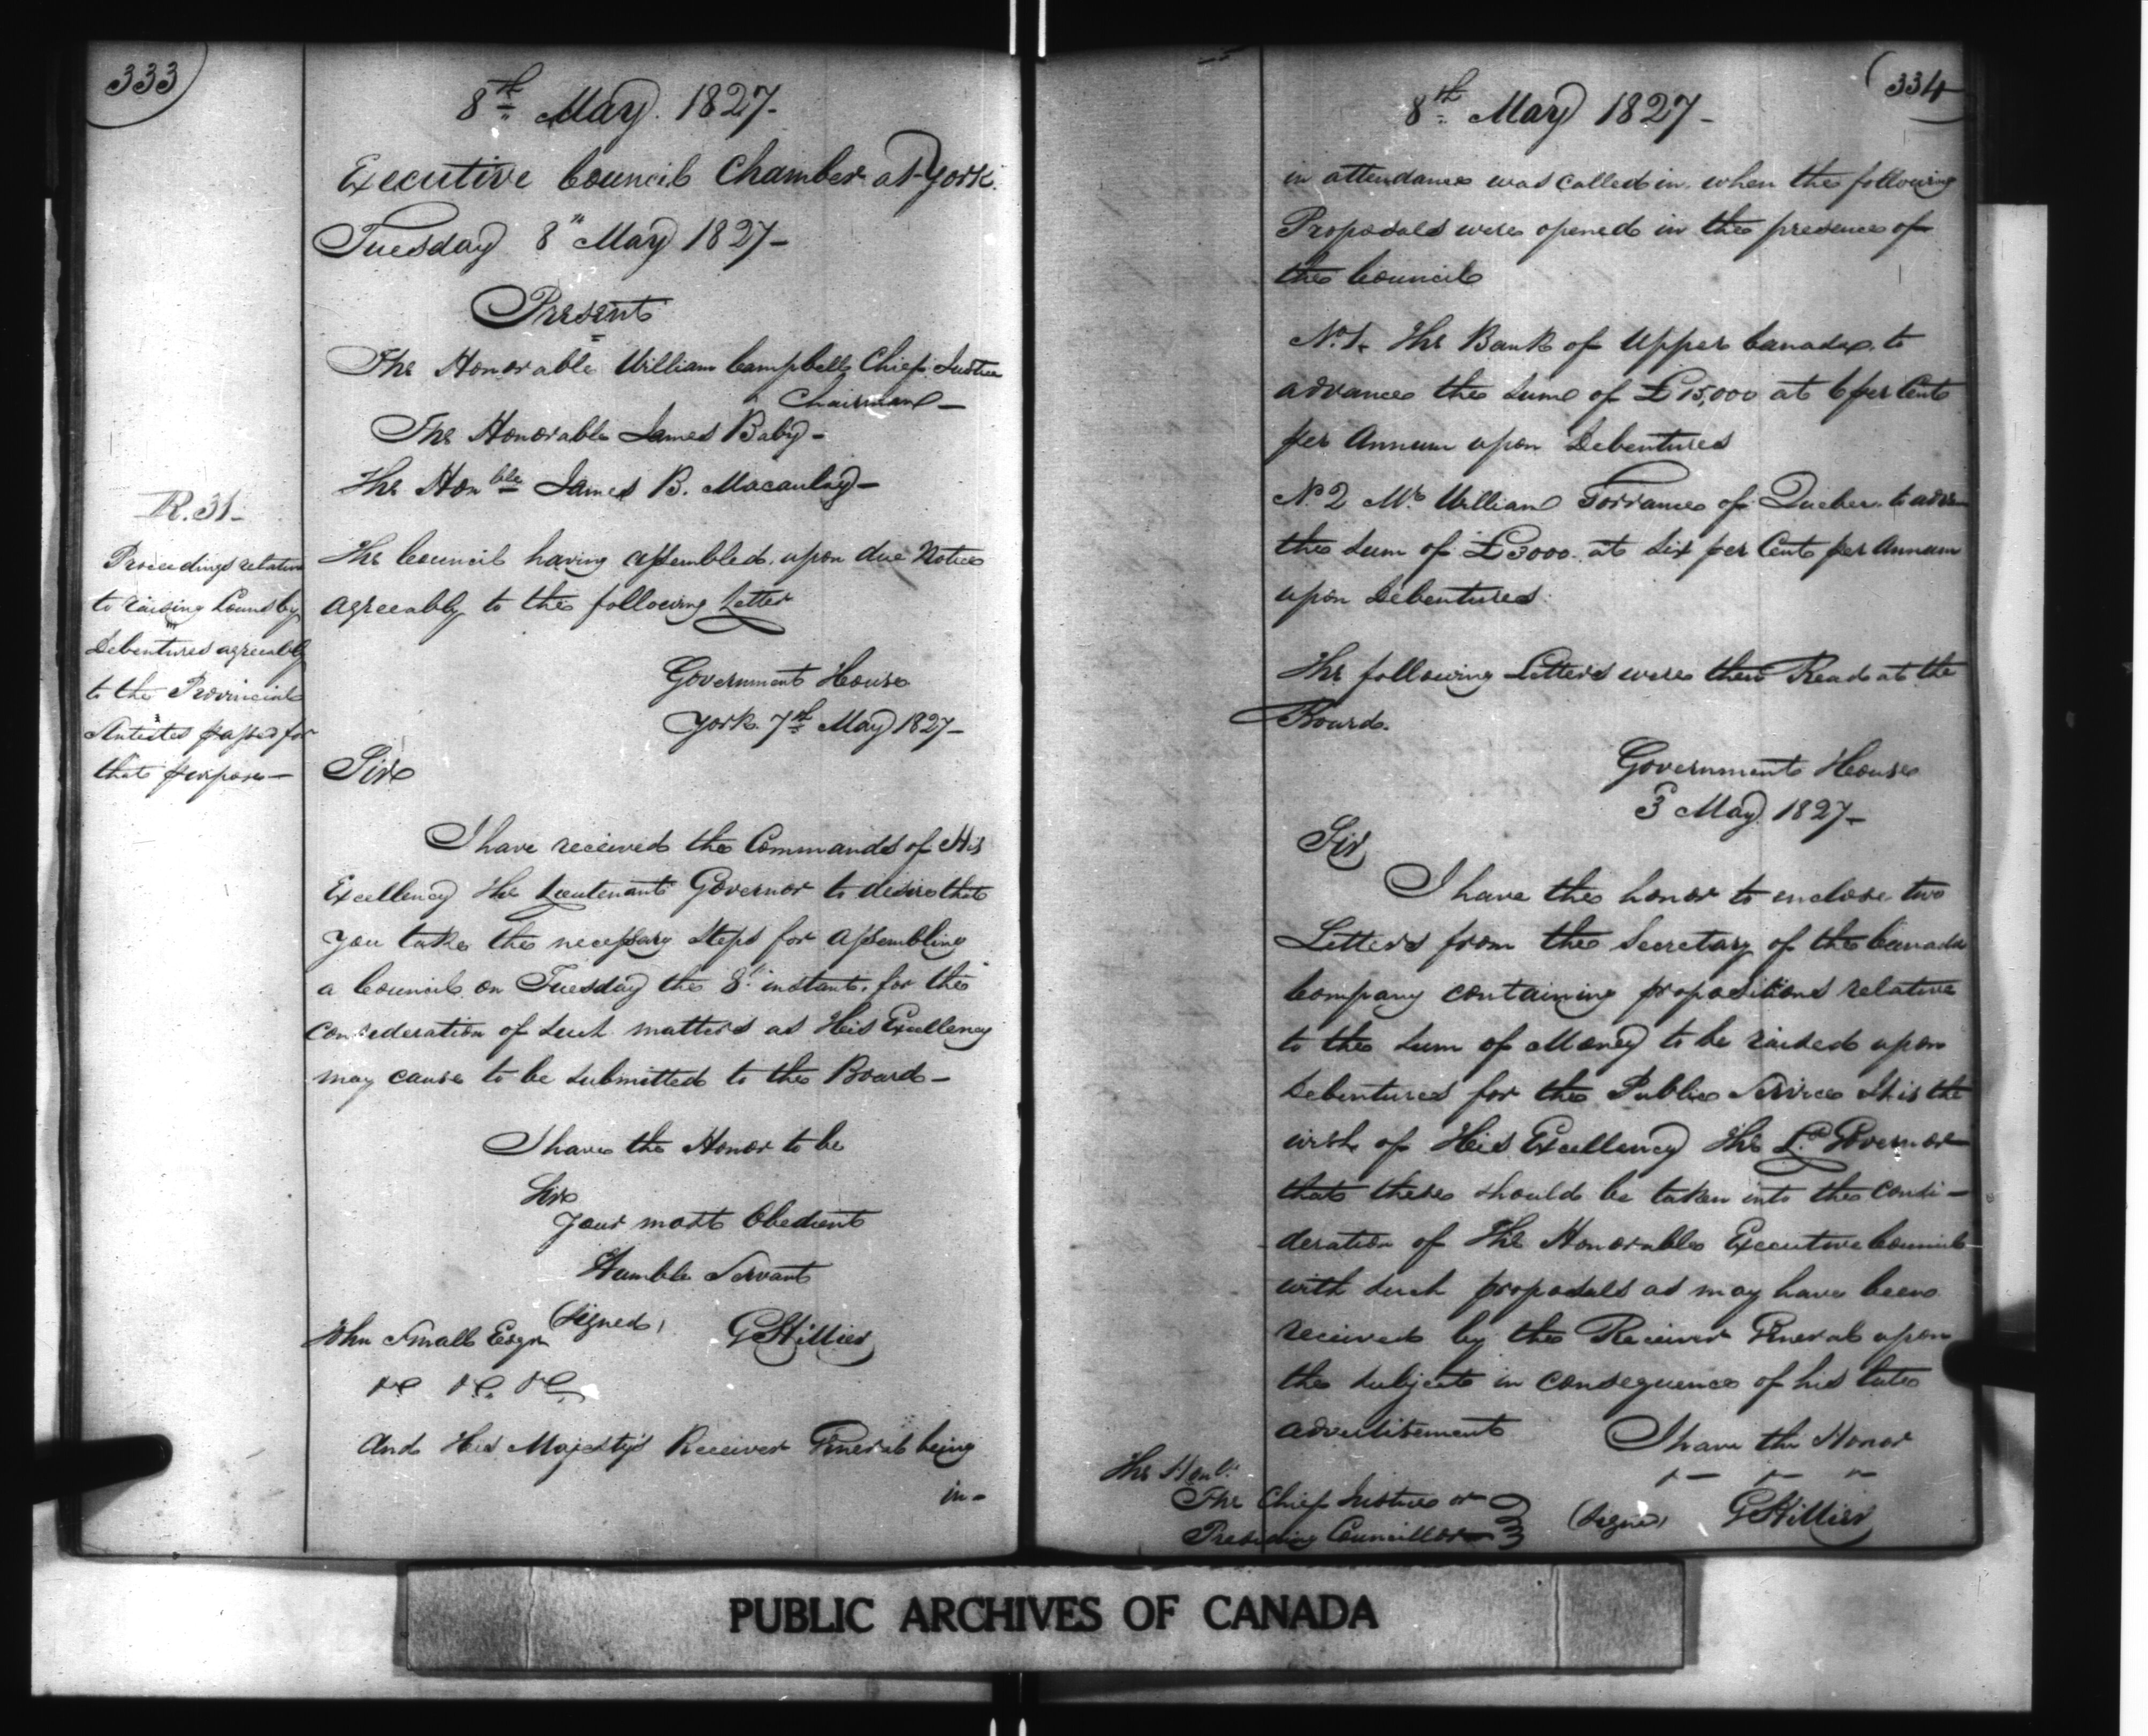 333
8th May. 1827-
Executive Council Chamber at York.
Tuesday 8th May 1827-
Present
The Honorable William Campbell Chief Justice
Chairman-
The Honorable James Baby-
The Honble James B. Macaulay-
R.31-
Proceedings relative
to raising Loans by
Debentures agreeably
to the Provincial
Statutes passed for
that purpose-
The Council having assembled upon due Notice
agreeably to the following Letter
Government House
York 7th May 1827-
Sir
I have received the Commands of His
Excellency The Lieutenant Governor to desire that
you take the necessary steps for assembling
a Council on Tuesday the 8th instant, for the
consideration of such matters as His Excellency
may cause to be submitted to the Board-
I have the Honor to be
Sir
Your most Obedient
Humble Servant
(Signed) G Hillier
John Small Esqr
&c &c. &c
And His Majesty's Receiver General being
in-
334
8th May 1827-
in attendance was called in, when the following
Proposals were opened in the presence of
the Council
No. 1. The Bank of Upper Canada, to
advance the sum of £15,000 at 6 per Cent
per Annum upon Debentures
No. 2 Mr. William Torrance of Quebec to
the sum of £3000. at six per Cent per Annum
upon Debentures.
The following Letters were then Read at the
Board.
Government House
3 May 1827-
Sir
I have the honor to enclose two
Letters from the Secretary of the Canada
Company containing propositions relative
to the sum of Money to be raised upon
Debentures for the Public Service It is the
wish of His Excellency The Lt. Governor
that these should be taken into the consi-
deration of The Honorable Executive Council
with such proposals as may have been
received by the Receiver General upon
the subject in consequence of his late
advertisement
I have the Honor
The Honl.
The Chief Justice or
Presiding Councillor
(Signed) G Hillier
PUBLIC ARCHIVES OF CANADA